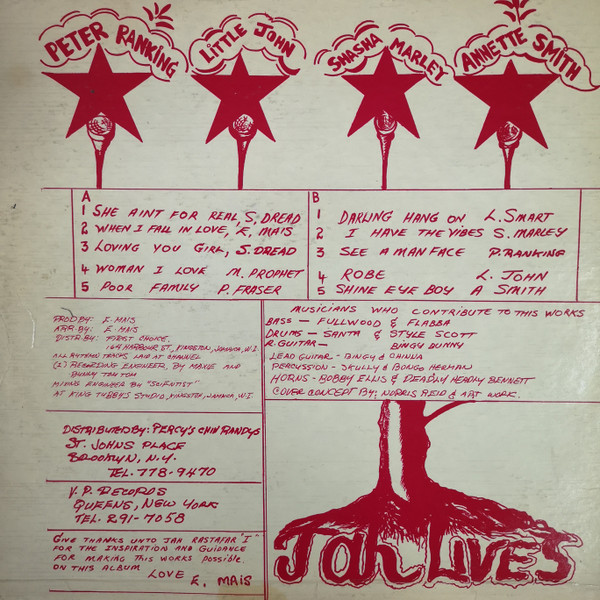 PETER RANKING
LITTLE JOHN
SHASHA MARLEY
ANNETTE SMITH
A
1 SHE AINT FOR REAL, S. DREAD
2 WHEN I FALL IN LOVE, E. MAIS
3 LOVING YOU GIRL, S. DREAD
4 WOMAN I LOVE M. PROPHET
5 POOR FAMILY P. FRASER
B
1 DARLING HANG ON L. SMART
2 I HAVE THE VIBES S. MARLEY
3 SEE A MAN FACE P. RANKING
4 ROBE L. JOHN
5 SHINE EYE BOY A SMITH
PROD BY: E. MAIS
ARR. BY: E. MAIS
DISTR. BY: FIRST CHOICE,
HARBOUR ST., KINGSTON, JAMAICA, W.I.
ALL RYTHMN TRACKS LAID AT CHANNEL
(1) RECORDING ENGINEER, BY MAXIE AND
BUNNY TOM TOM
MIXING ENGINEER BY "SCIENTIST"
AT KING TUBBY'S STUDIO, KINGSTON, JAMAICA, W.I.
DISTRIBUTED BY: PERCY'S CHIN RANDYS
ST. JOHNS PLACE
BROOKLYN, N.Y.
TEL. 778-9470
V.P. RECORDS
QUEENS, NEW YORK
TEL. 291-7058
GIVE THANKS UNTO JAH RASTAFAR "I"
FOR THE INSPIRATION AND GUIDANCE
FOR MAKING THIS WORKS POSSIBLE.
ON THIS ALBUM
LOVE
E. MAIS
MUSICIANS WHO CONTRIBUTE TO THIS WORKS
BASS - FULLWOOD & FLABBA
DRUMS - SANTA & STYLE SCOTT
R. GUITAR - BINGY BUNNY
LEAD GUITAR - BINGY & CHINNA
PERCUSSION - SKULLY & BONGO HERMAN
HORNS - BOBBY ELLIS & DEADLY HEADLY BENNETT
COVER CONCEPT BY: NORRIS REID & ART WORK.
Jah LIVES